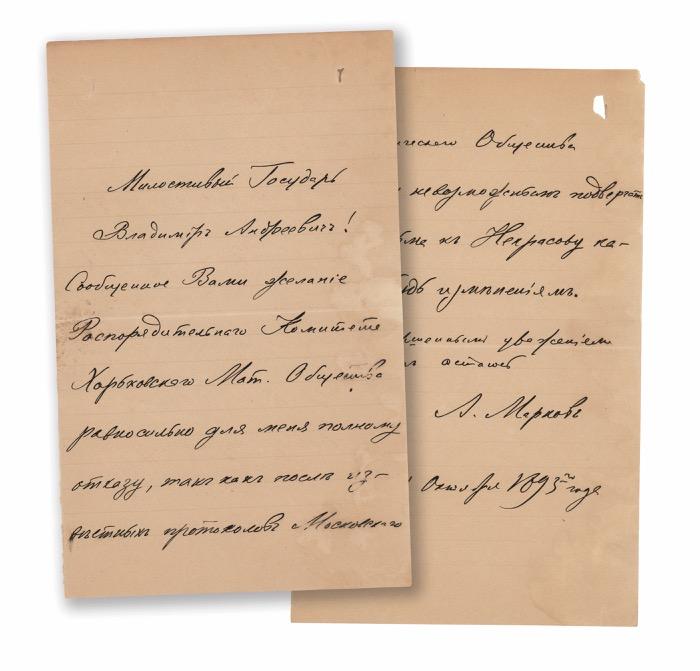 Милостивый Государь
Владиміръ Андреевичъ!
Сообщенное Вами желаніе
Распорядительнаго Комитета
Харьковскаго Мат. Общества
равносильно для меня полному
отказу, такъ какъ послѣ из-
вѣстныхъ протоколовъ Московскаго
ческаго Общества
невозможнымъ подвергать
ма къ Некрасову ка-
удь измѣненіямъ.
ршеннымъ уваженіемъ
остаюсь
А. Марковъ
Октября 1893 года